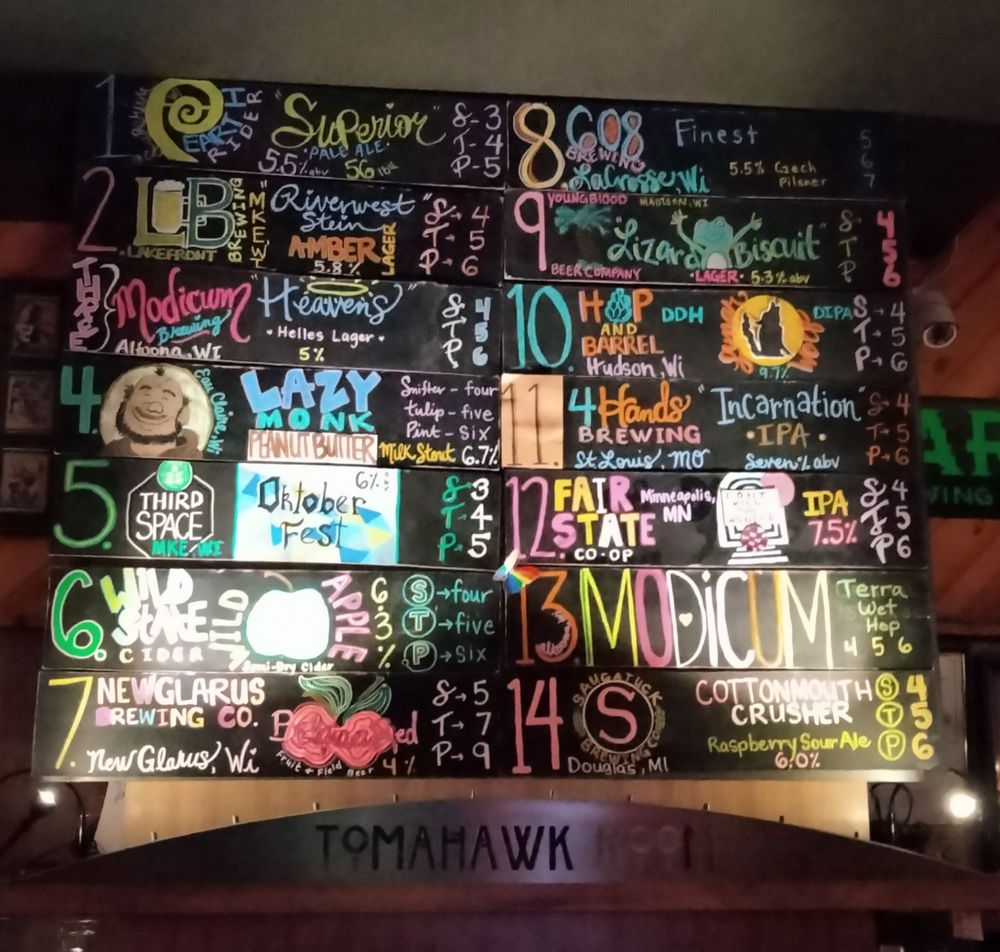 1
EARTH
RIDER
"Superior"
PALE ALE
5.5% abv 56 ibu
S- 3
T- 4
P- 5
2
LB
BREWING
LAKEFRONT
MKE, WI
"Riverwest
Stein"
AMBER
LAGER
5.8%
S→ 4
T→ 5
P→ 6
THREE
Modicum
Brewing
Altoona, WI
"Heavens"
• Helles Lager •
5%
S 4
T 5
P 6
4.
Eau Claire, Wi
LAZY
MONK
PEANUT BUTTER
Milk Stout 6.7%
Snifter - four
tulip - five
Pint - six
5.
THIRD
SPACE
MKE, WI
Oktober
Fest
6%
S→ 3
T→ 4
P→ 5
6.
WILD
STATE
CIDER
WILD
APPLE
Semi-Dry Cider
6.3%
S→four
T→five
P→six
7.
NEW GLARUS
BREWING CO.
New Glarus, Wi
Fruit & Field Beer
4%
S→ 5
T→ 7
P→ 9
8
608
BREWING
LaCrosse, Wi
Finest
5.5% Czech
Pilsner
5
6
7
9
YOUNGBLOOD
BEER COMPANY
MADISON, WI
"Lizard Biscuit"
• LAGER • 5.3% abv
S 4
T 5
P 6
10
HOP
AND
BARREL
Hudson, Wi
DDH
DIPA
9.7%
S→ 4
T→ 5
P→ 6
11.
4 Hands
BREWING
St Louis, MO
"Incarnation"
• IPA •
Seven% abv
S→ 4
T→ 5
P→ 6
12.
FAIR
STATE
CO-OP
Minneapolis,
MN
IPA
7.5%
S 4
T 5
P 6
13.
MODiCUM
Terra
Wet
Hop
4 5 6
14
SAUGATUCK
S
BREWING CO.
Douglas, MI
COTTONMOUTH
CRUSHER
Raspberry Sour Ale
6.0%
S 4
T 5
P 6
TOMAHAWK ROOM